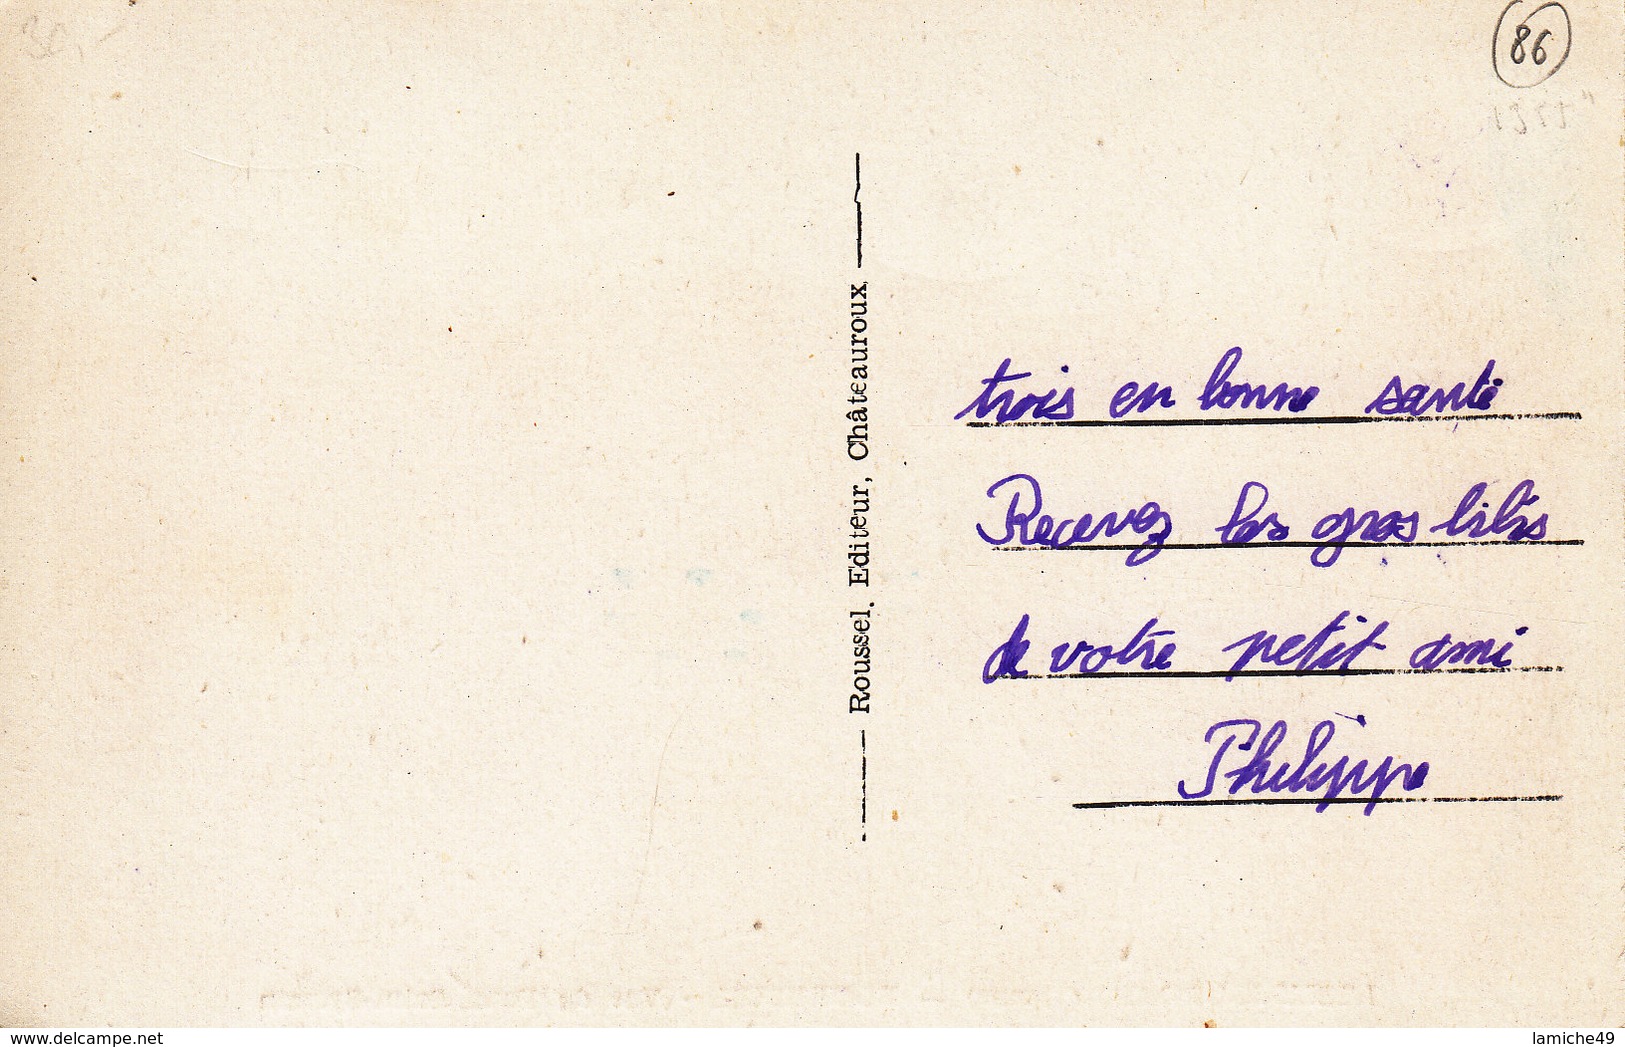 86
Roussel, Editeur, Châteauroux
trois en bonne santé
Recevez les gros bibis
de votre petit ami
Philippe
www.delcampe.net
lamiche49